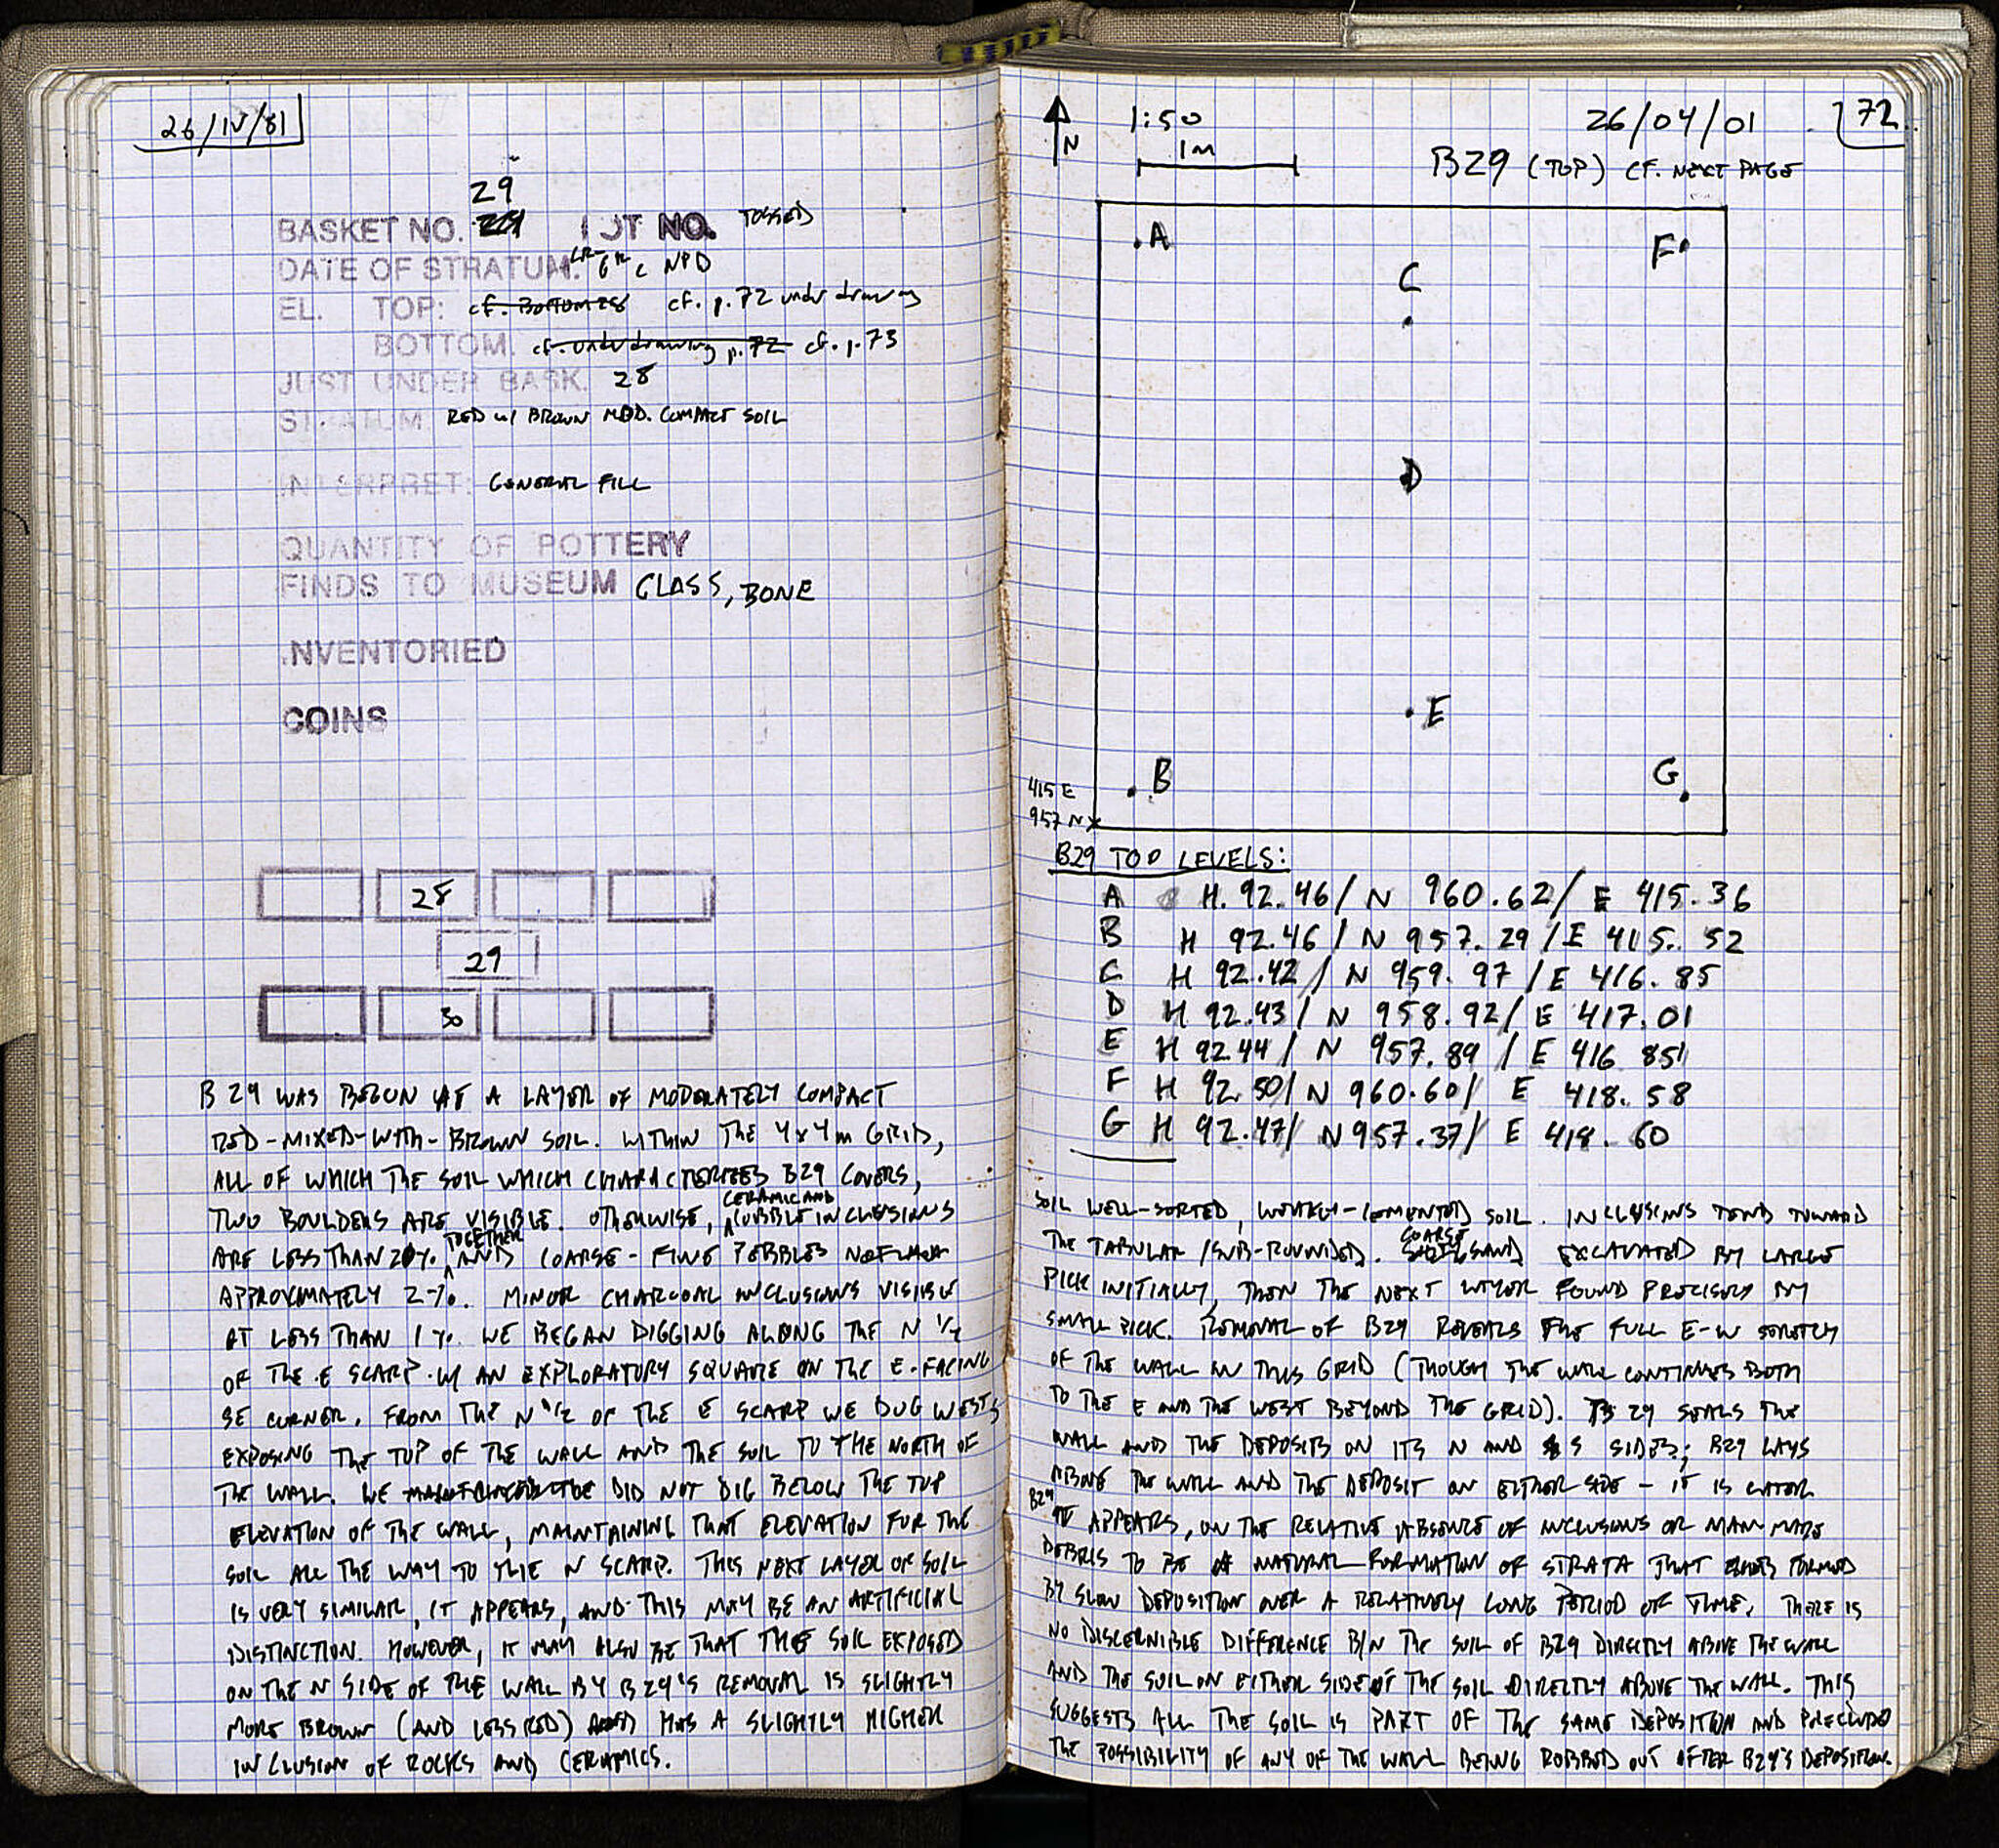 26/IV/81
29
BASKET NO. LOT NO. TOSSED
DATE OF STRATUM. LR-6th c NPD
EL. TOP: cf. BOTTOM 28 cf. p.72 under drawing
BOTTOM. cf. under drawing p.72 cf. p.73
JUST UNDER BASK. 28
STRATUM RED w/ BROWN MOD. COMPACT SOIL
INTERPRET: GENERAL FILL
QUANTITY OF POTTERY
FINDS TO MUSEUM GLASS, BONE
.NVENTORIED
COINS
28
29
30
B 29 WAS BEGUN AT A LAYER OF MODERATELY COMPACT
RED-MIXED-WITH-BROWN SOIL. WITHIN THE 4x4m GRID,
ALL OF WHICH THE SOIL WHICH CHARACTERIZES B29 COVERS,
TWO BOULDERS ARE VISIBLE. OTHERWISE, CERAMIC AND COBBLE INCLUSIONS
ARE LESS THAN 20%. TOGETHER AND COARSE-FINE PEBBLES
APPROXIMATELY 2%. MINOR CHARCOAL INCLUSIONS VISIBLE
AT LESS THAN 1%. WE BEGAN DIGGING ALONG THE N 1/2
OF THE E SCARP W/ AN EXPLORATORY SQUARE ON THE E-FACING
SE CORNER. FROM THE N 1/2 OF THE E SCARP WE DUG WEST,
EXPOSING THE TOP OF THE WALL AND THE SOIL TO THE NORTH OF
THE WALL. WE DID NOT DIG BELOW THE TOP
ELEVATION OF THE WALL, MAINTAINING THAT ELEVATION FOR THE
SOIL ALL THE WAY TO THE N SCARP. THIS NEXT LAYER OF SOIL
IS VERY SIMILAR, IT APPEARS, AND THIS MAY BE AN ARTIFICIAL
DISTINCTION. HOWEVER, IT MAY ALSO BE THAT THE SOIL EXPOSED
ON THE N SIDE OF THE WALL BY B29'S REMOVAL IS SLIGHTLY
MORE BROWN (AND LESS RED) HAS A SLIGHTLY HIGHER
INCLUSION OF ROCKS AND CERAMICS.
N 1:50 26/04/01 72
1m
B29 (TOP) CF. NEXT PAGE
A
F
C
D
E
B
G
415 E
957 N
B29 TOP LEVELS:
A H. 92.46/ N 960.62/ E 415.36
B H 92.46 / N 957.29 / E 415.52
C H 92.42 / N 959.97 / E 416.85
D H 92.43 / N 958.92/ E 417.01
E H 92.44 / N 957.89 / E 416 851
F H 92.50/ N 960.60/ E 418.58
G H 92.47/ N 957.37/ E 418.60
SOIL WELL-SORTED, WEAKLY-CEMENTED SOIL. INCLUSIONS TEND TOWARD
THE TABULAR/SUB-ROUNDED. COARSE SAND EXCAVATED BY LARGE
PICK INITIALLY, THEN THE NEXT LAYER FOUND PRECISELY BY
SMALL PICK. REMOVAL OF B29 REVEALS THE FULL E-W STRETCH
OF THE WALL IN THIS GRID (THOUGH THE WALL CONTINUES BOTH
TO THE E AND THE WEST BEYOND THE GRID). B29 SEALS THE
WALL AND THE DEPOSITS ON ITS N AND S SIDES; B29 LAYS
ABOVE THE WALL AND THE DEPOSIT ON EITHER SIDE - IT IS LATER
B29 APPEARS, ON THE RELATIVE ABSENCE OF INCLUSIONS OR MAN-MADE
DEBRIS TO BE A NATURAL FORMATION OF STRATA THAT FORMED
BY SLOW DEPOSITION OVER A RELATIVELY LONG PERIOD OF TIME. THERE IS
NO DISCERNIBLE DIFFERENCE B/N THE SOIL OF B29 DIRECTLY ABOVE THE WALL
AND THE SOIL ON EITHER SIDE OF THE SOIL DIRECTLY ABOVE THE WALL. THIS
SUGGESTS ALL THE SOIL IS PART OF THE SAME DEPOSITION AND PRECLUDES
THE POSSIBILITY OF ANY OF THE WALL BEING ROBBED OUT AFTER B29'S DEPOSITION.